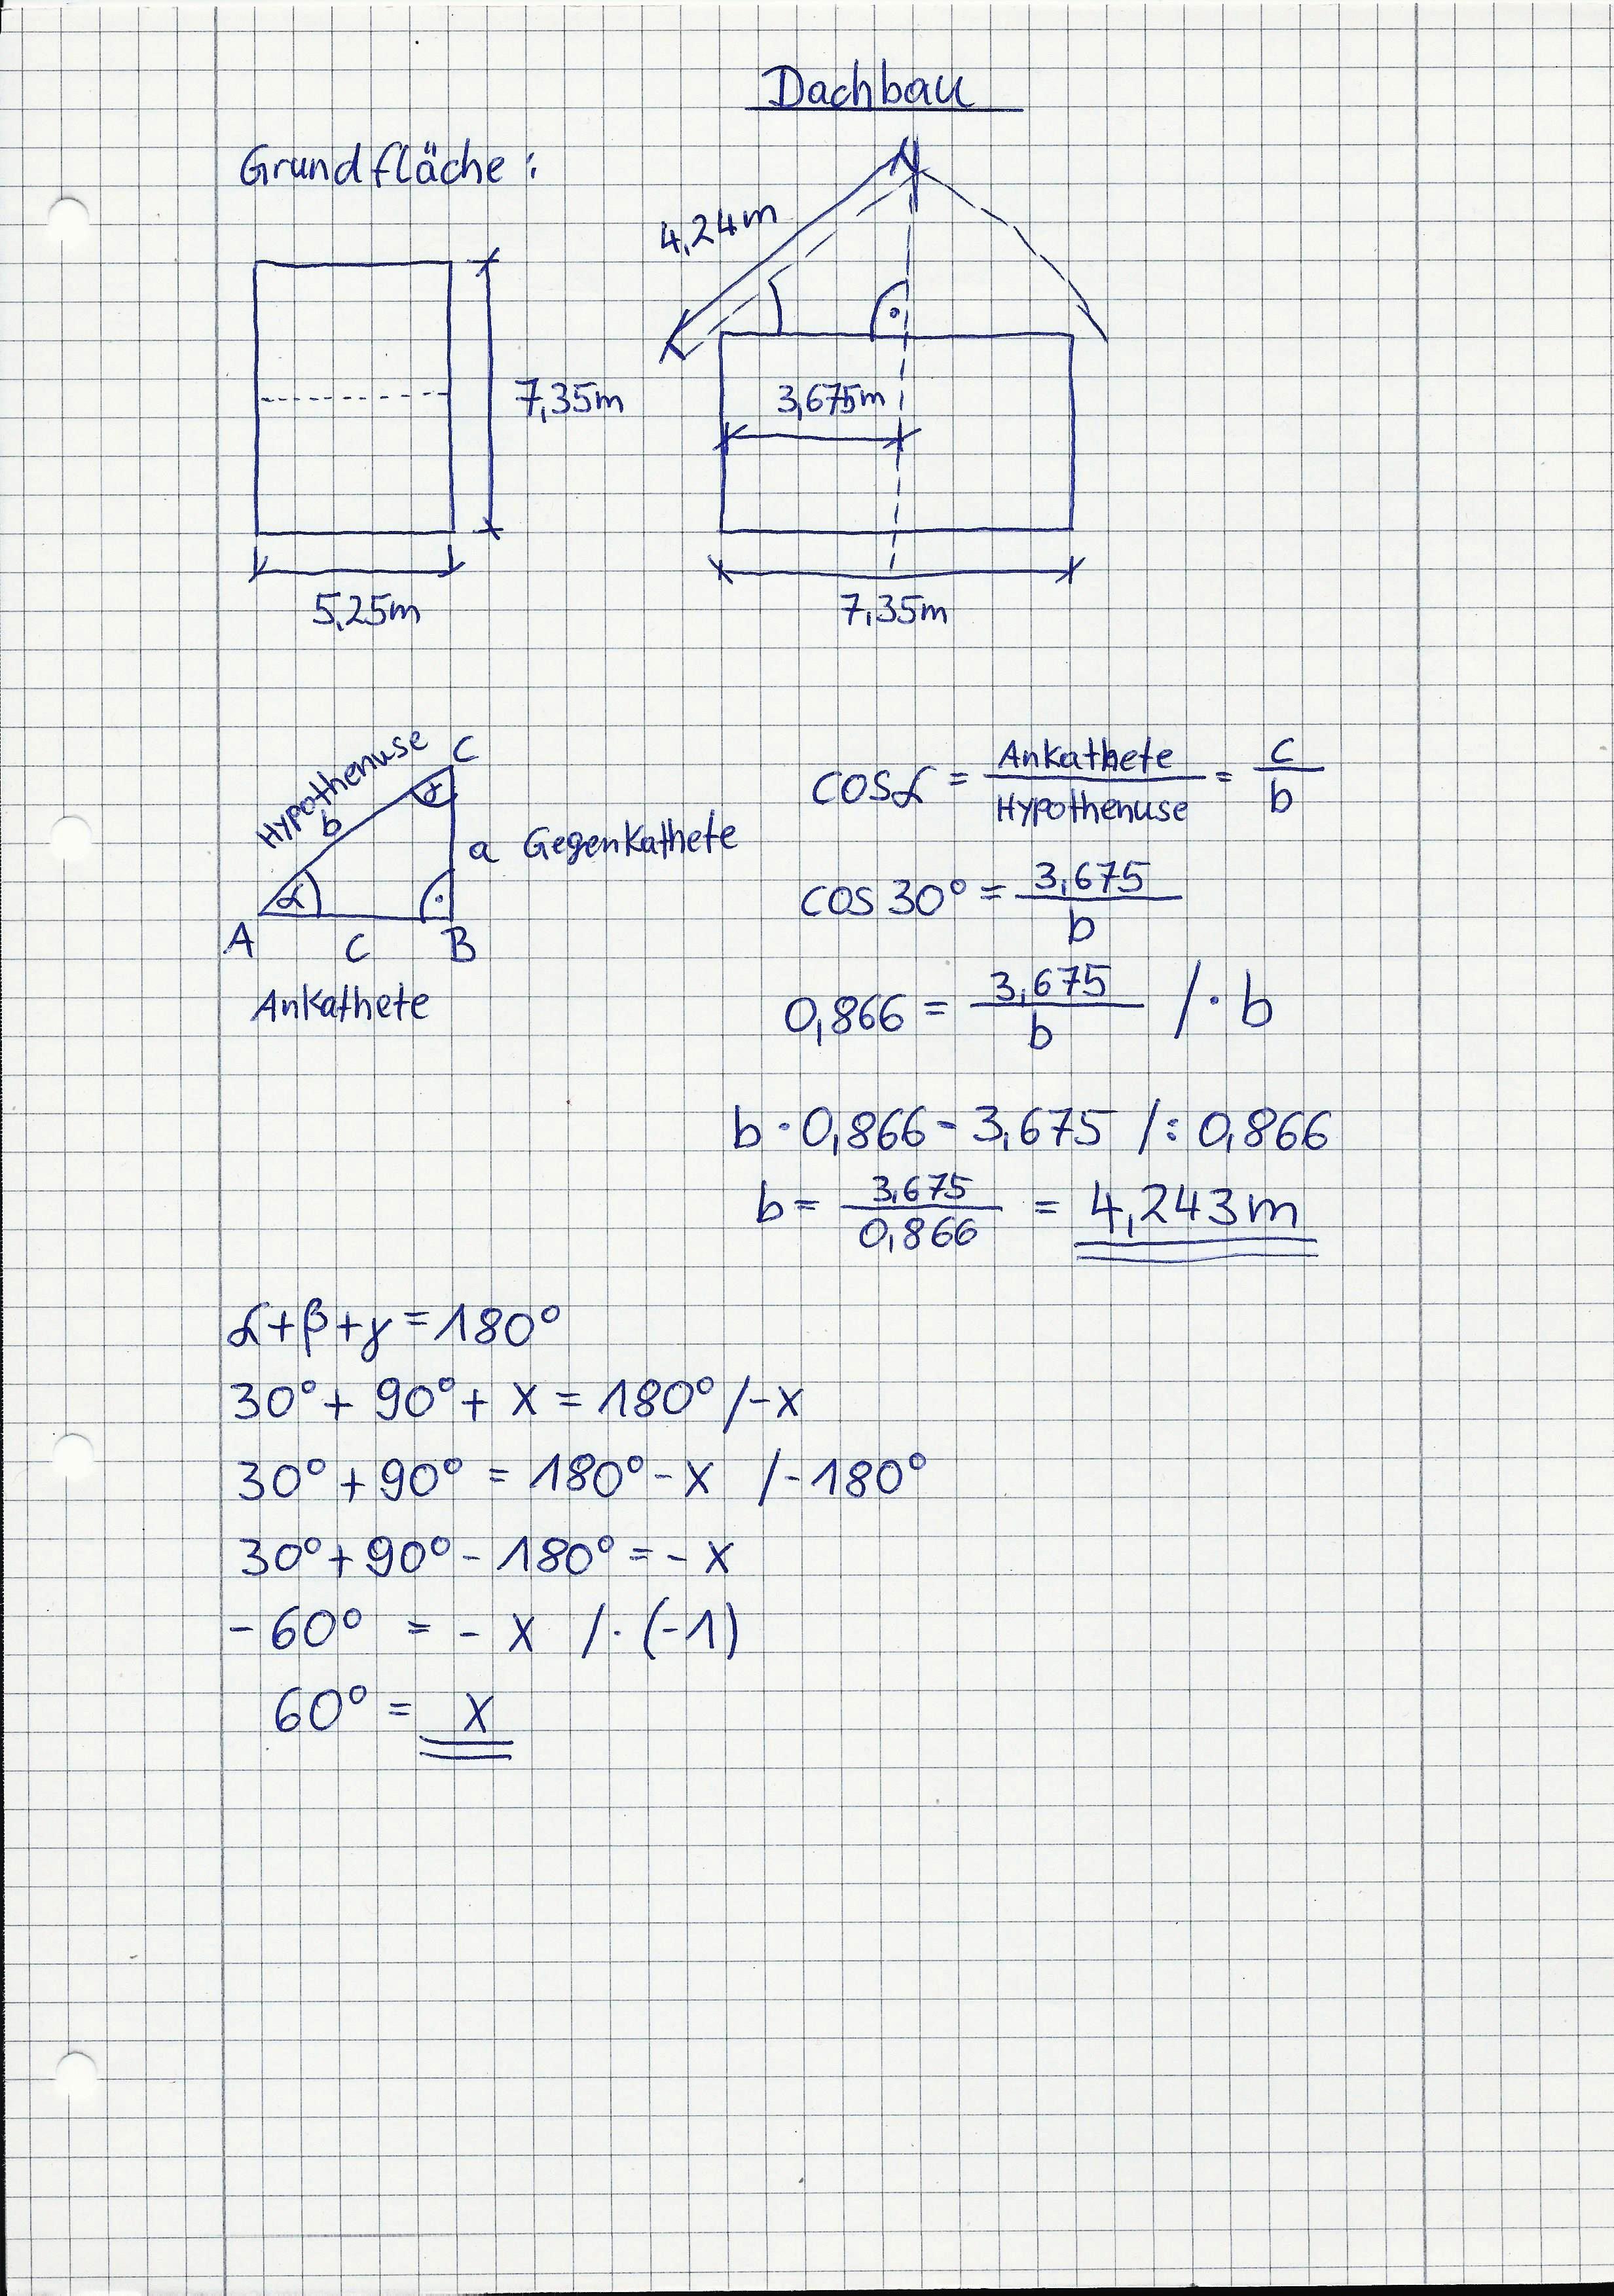 Dachbau
Grundfläche:
4,24m
7,35m
3,675m
5,25m
7,35m
Hypothenuse
b
C
γ
a Gegenkathete
α
A
c
B
Ankathete
cosα = Ankathete / Hypothenuse = c / b
cos 30° = 3,675 / b
0,866 = 3,675 / b / · b
b · 0,866 = 3,675 /: 0,866
b = 3,675 / 0,866 = 4,243m
α+β+γ=180°
30°+ 90°+ x = 180° /-x
30° + 90° = 180° - x /-180°
30°+ 90° - 180° = - x
- 60° = - x /· (-1)
60° = x